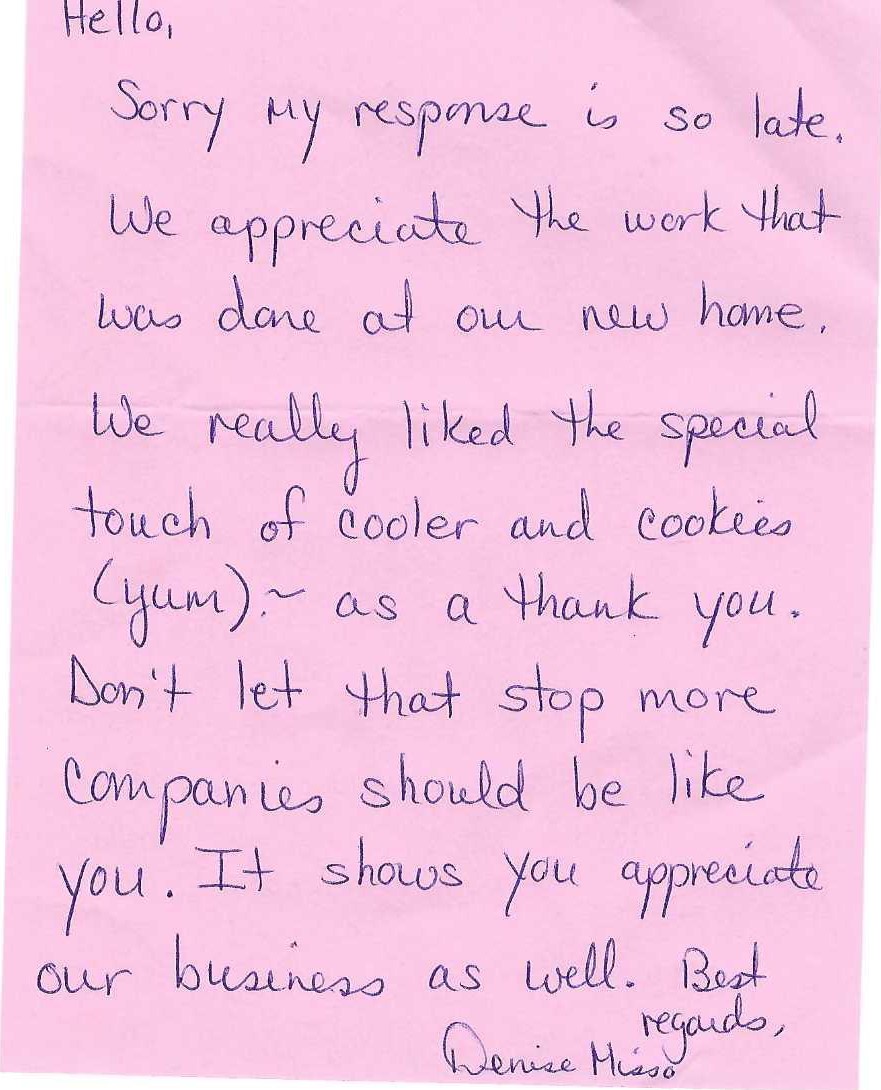 Hello,
Sorry My response is so late.
We appreciate the work that
was done at our new home.
We really liked the special
touch of cooler and cookies
(yum).~ as a thank you.
Don't let that stop more
Companies should be like
you. It shows you appreciate
our business as well. Best
regards,
Denise Misso